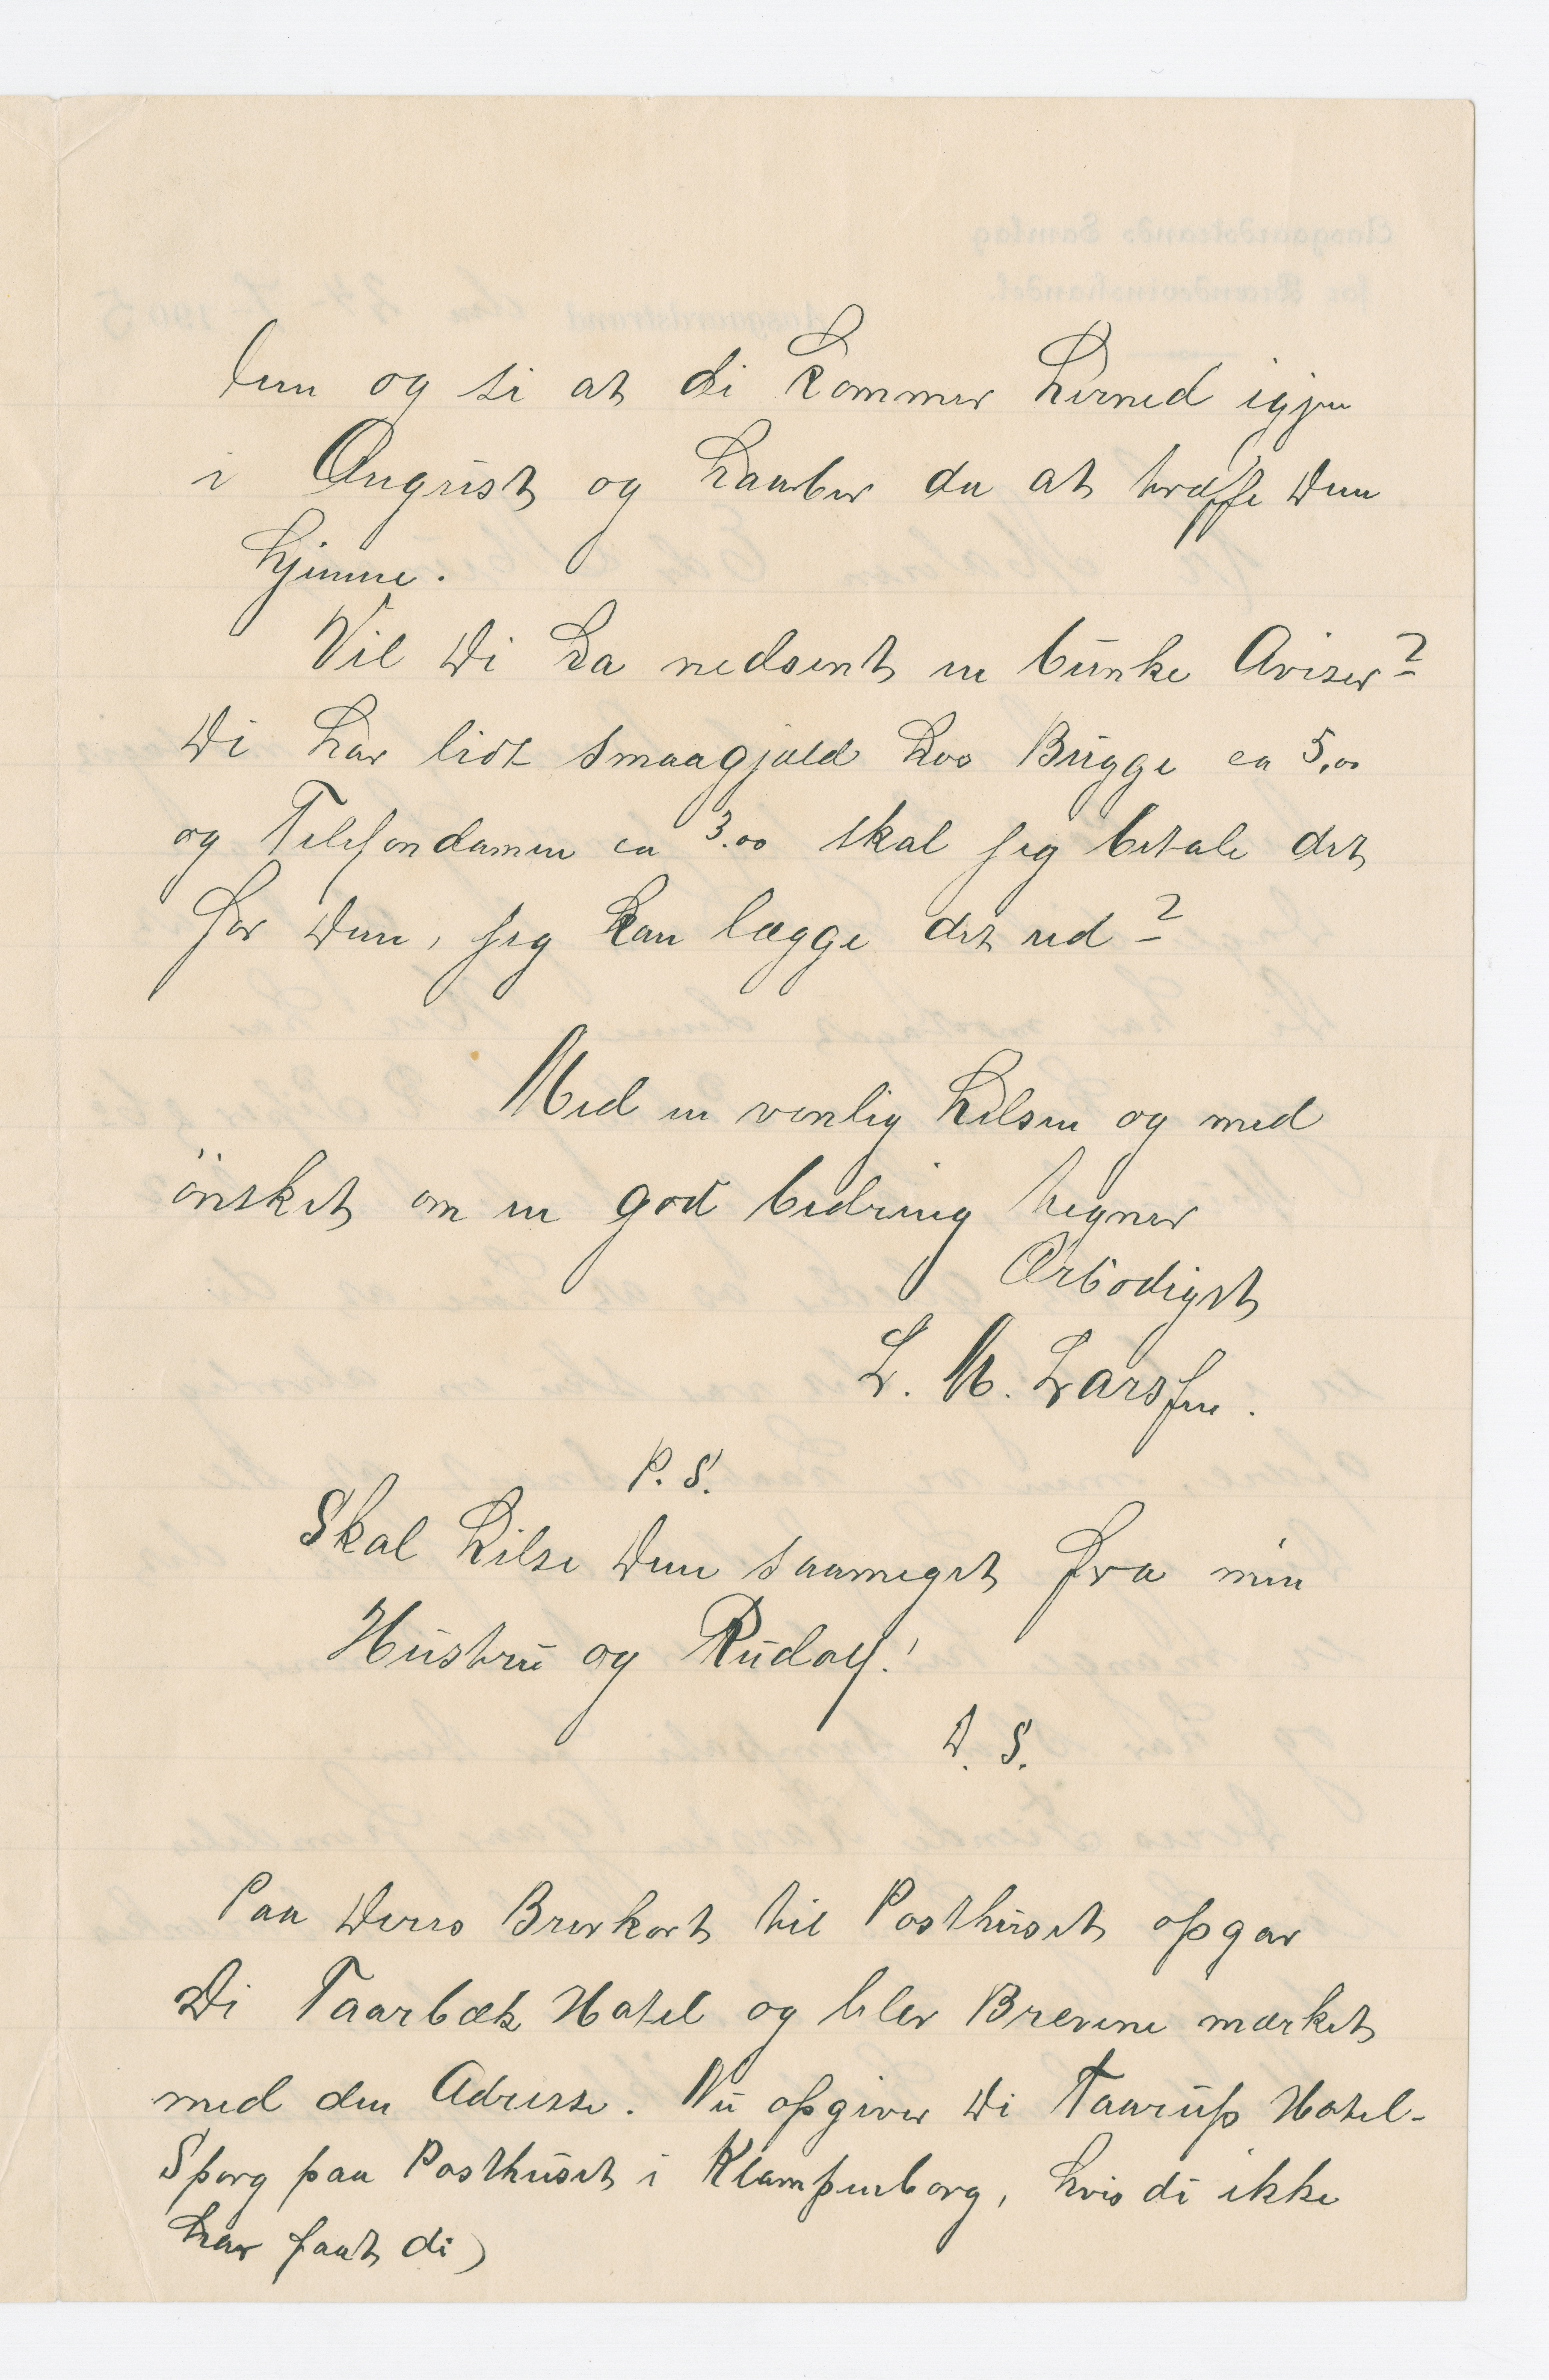 dem og si at di kommer herned igjen
i August og haaber da at træffe Dem
hjemme.
Vil De ha nedsent en bunke Aviser?
De har lidt smaagjæld hos Bugge ca 5,00
og Telefondamen ca 3.00 skal jeg betale det
for Dem, jeg kan lægge det ud?
Med en venlig hilsen og med
ønsket om en god bedring tegner
Ærbødigst
L. M. Larssen.
P. S.
Skal hilse Dem saameget fra min
Hustru og Rudolf!
D. S.
Paa Deres Brevkort til Posthuset opgav
De Taarbæk Hotel og blev Brevene mærket
med den Adresse. Nu opgiver De Taarup Hotel-
Spørg paa Posthuset i Klampenborg, hvis di ikke
har faat di)